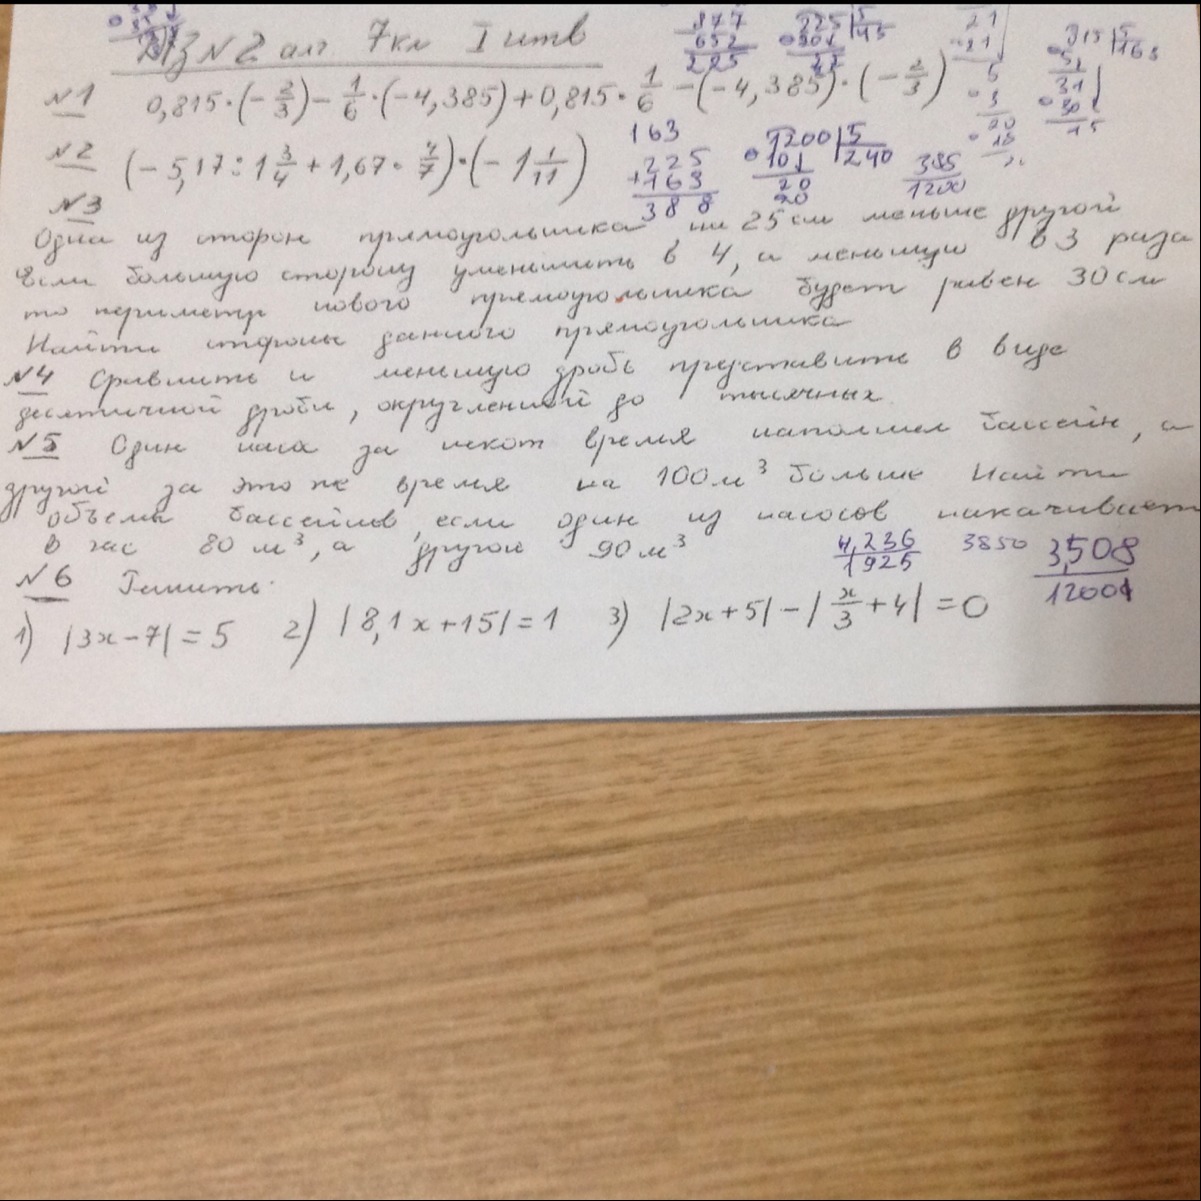 ДЗ N2 алг 7кл I четв
N1 0,815·(-2/3) - 1/6·(-4,385) + 0,815·1/6 - (-4,385)·(-2/3)
N2 (-5,17 : 1 3/4 + 1,67 · 4/7)·(-1 1/11)
163
225
+163
388
1200 5
240
20
20
385
1200
N3
Одна из сторон прямоугольника на 25см меньше другой
Если большую сторону уменьшить в 4, а меньшую в 3 раза
то периметр нового прямоугольника будет равен 30см
Найти стороны данного прямоугольника
N4 Сравнить и меньшую дробь представить в виде
десятичной дроби, округленной до тысячных.
N5 Один насос за некот время наполнил бассейн, а
другой за это же время на 100м³ больше Найти
объемы бассейнов, если один из насосов накачивает
в час 80м³, а другой 90м³
4,236
1925
3850
3,508
N6 Решить.
1) |3x-7| = 5 2) |8,1x+15| = 1 3) |2x+5| - |x/3+4| = 0